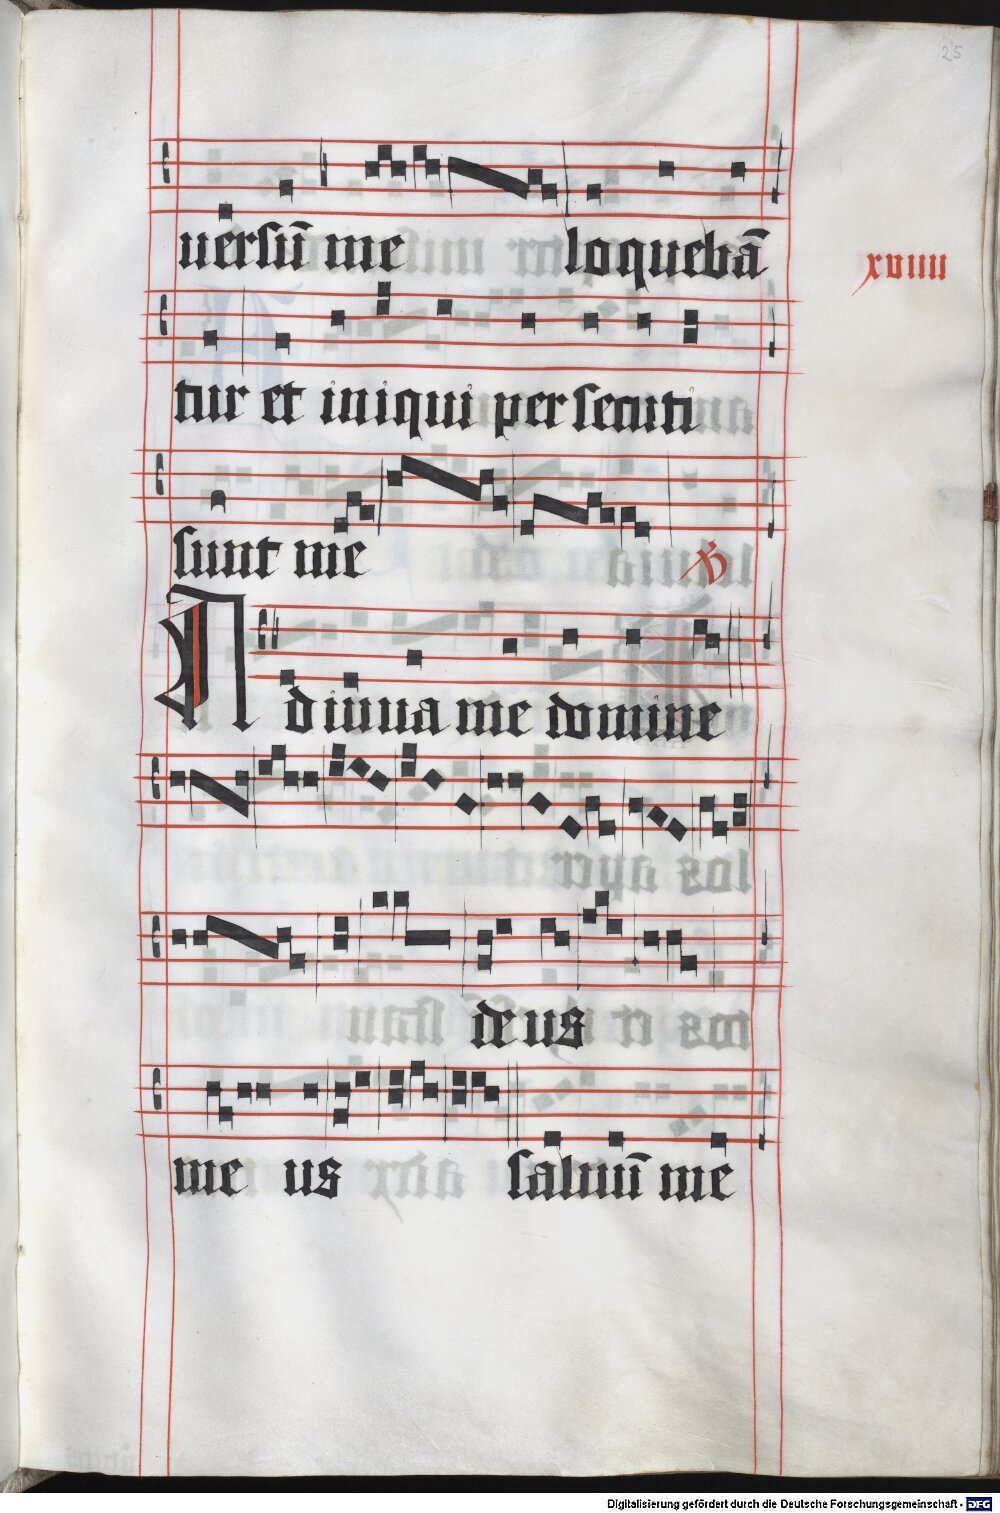 25
uersū me loquebā
xviiii
tur et iniqui persecuti
sunt me
Adiuua me domine
deus
me us saluū me
Digitalisierung gefördert durch die Deutsche Forschungsgemeinschaft - DFG